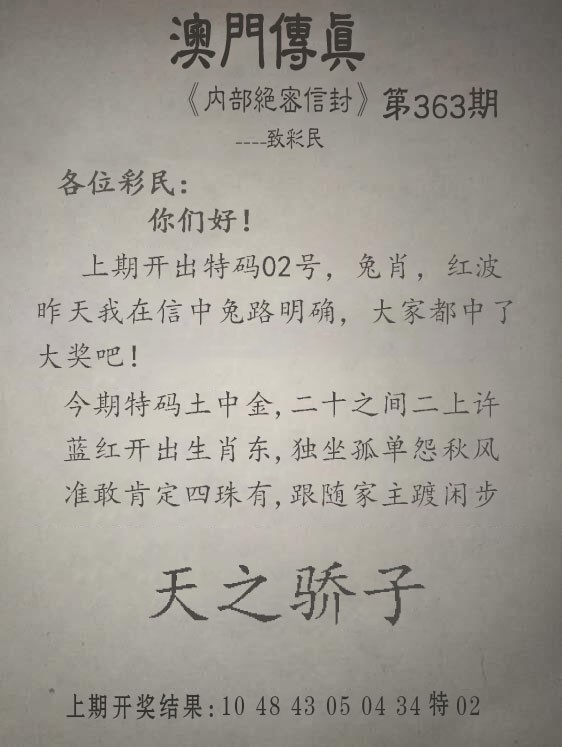 澳門傳眞
《内部絕密信封》第363期
----致彩民
各位彩民:
你们好!
上期开出特码02号，兔肖，红波
昨天我在信中兔路明确，大家都中了
大奖吧!
今期特码土中金,二十之间二上许
蓝红开出生肖东,独坐孤单怨秋风
准敢肯定四珠有,跟随家主踱闲步
天之骄子
上期开奖结果:10 48 43 05 04 34 特 02